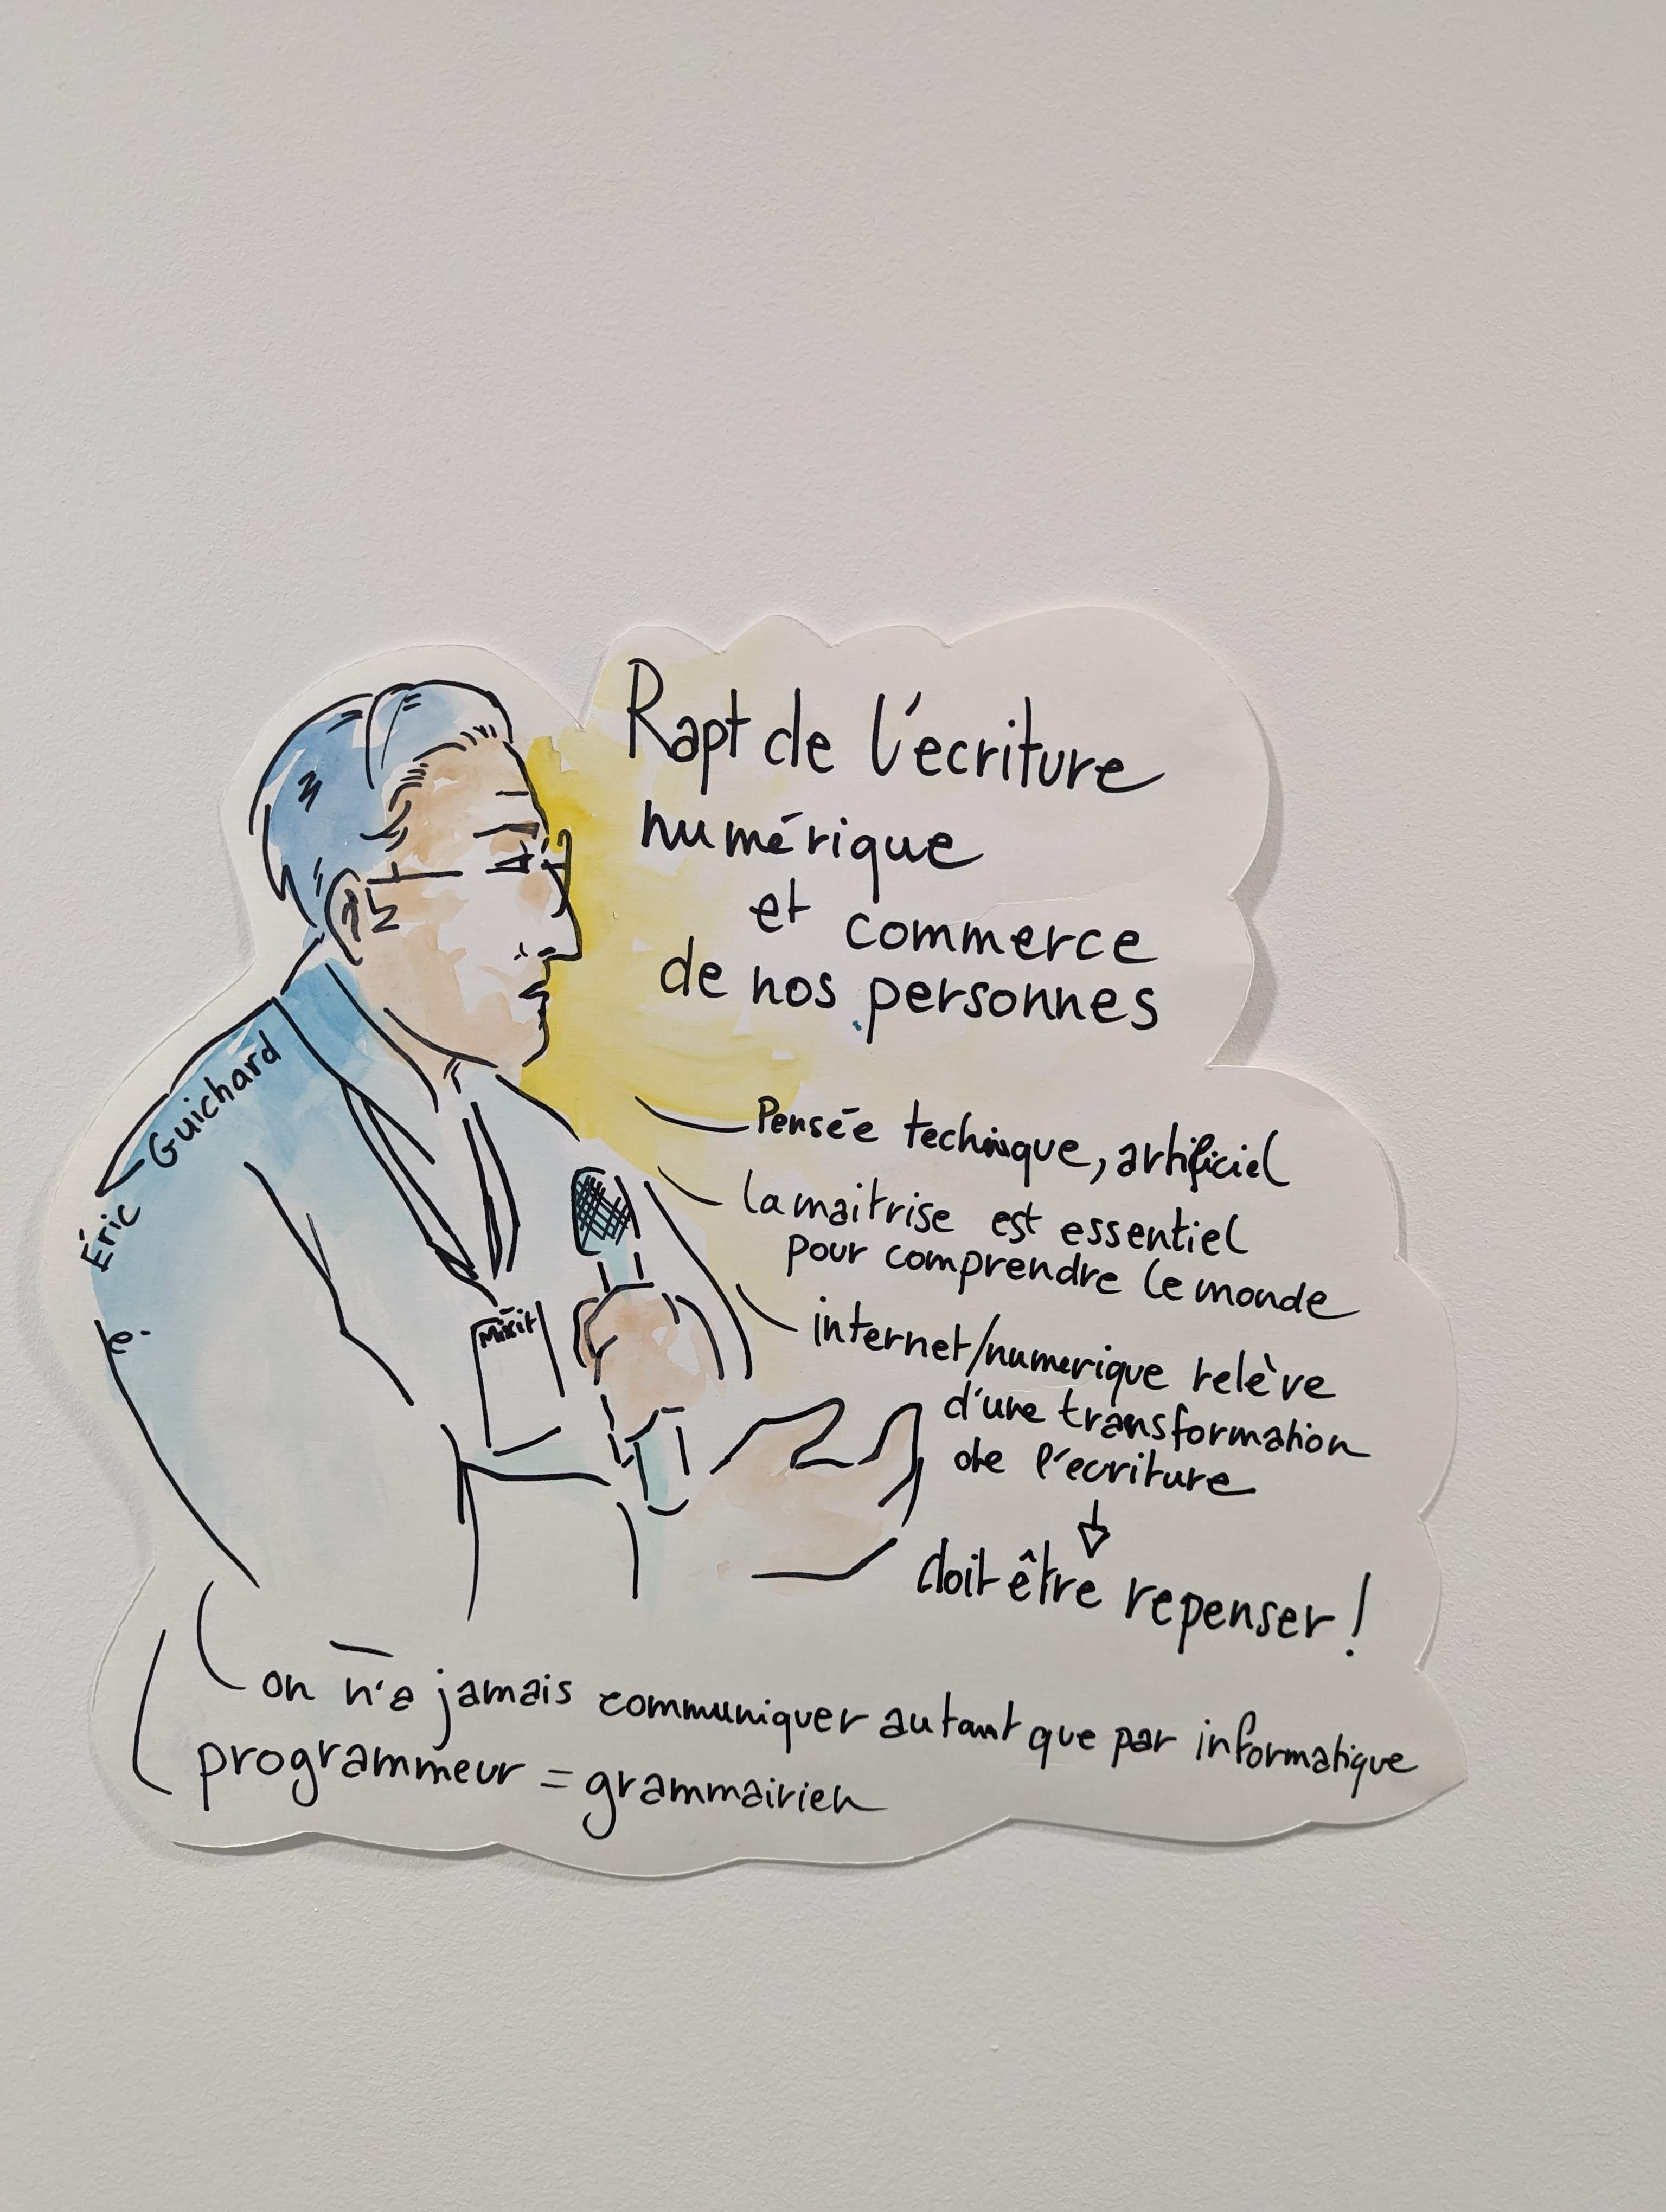 Rapt de l'écriture
numérique
et commerce
de nos personnes
Éric Guichard
e.
Mixit
Pensée technique, artificiel
la maitrise est essentiel
pour comprendre le monde
internet/numerique relève
d'une transformation
de l'ecriture
doit être repenser !
on n'a jamais communiquer autant que par informatique
programmeur = grammairien